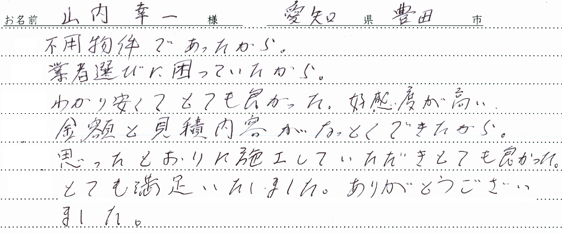 お名前 山内 幸一 様 愛知 県 豊田 市
不用物件であったから。
業者選びに困っていたから。
わかり安くてとても良かった。好感度が高い
金額と見積内容がなっとくできたから。
思ったとおりに施工していただきとても良かった。
とても満足いたしました。ありがとうござい
ました。